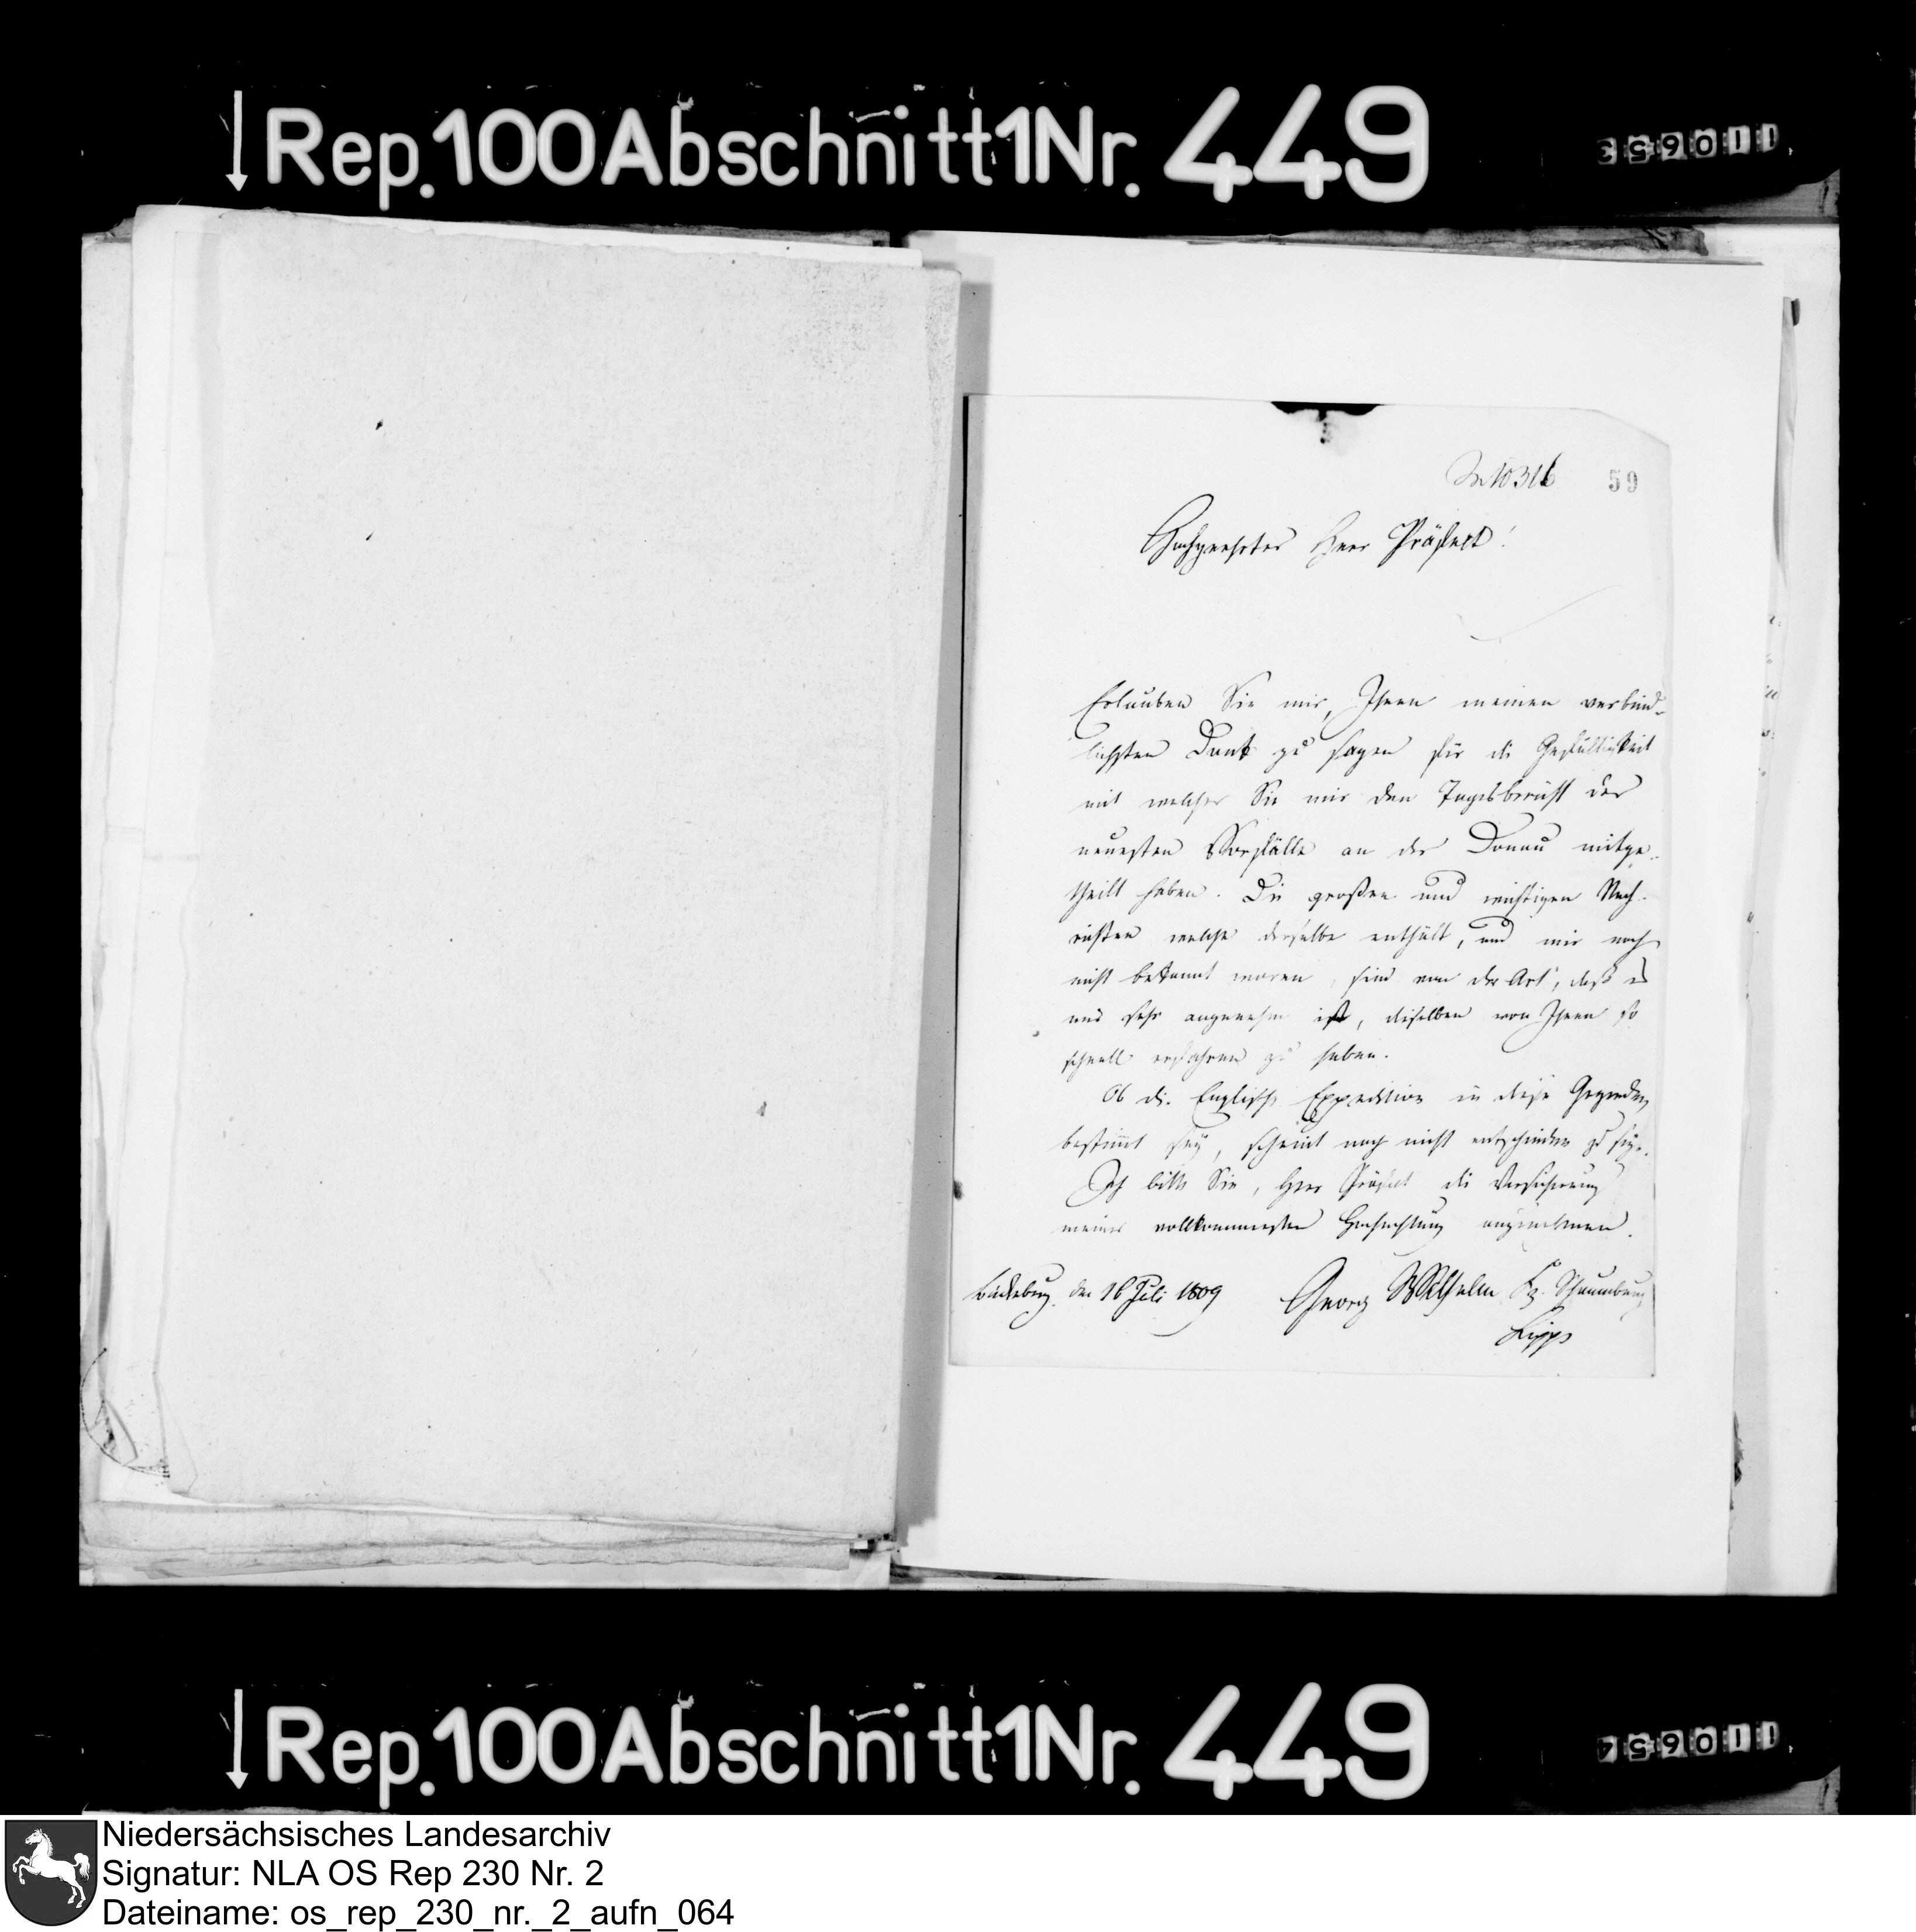 Rep. 100 Abschnitt 1 Nr. 449
110653
No 10316 59
Hochgeehrter Herr Präfect!
Erlauben Sie mir, Ihnen meinen verbind-
lichsten Dank zu sagen für die Gefälligkeit
mit welcher Sie mir den Tagesbericht der
neuesten Vorfälle an der Donau mitge-
theilt haben. Die großen und wichtigen Nach-
richten welche derselbe enthält, und mir noch
nicht bekannt waren, sind von der Art, daß es
uns sehr angenehm ist, dieselben von Ihnen so
schnell erfahren zu haben.
Ob die Englische Expedition in diese Gegenden
bestimmt sey, scheint noch nicht entschieden zu seyn.
Ich bitte Sie, Herr Präfect die Versicherung
meiner vollkommensten Hochachtung anzunehmen.
Bückeburg den 16 Juli 1809 Georg Wilhelm Fz. Schaumburg
Lippe
Rep. 100 Abschnitt 1 Nr. 449
110654
Niedersächsisches Landesarchiv
Signatur: NLA OS Rep 230 Nr. 2
Dateiname: os_rep_230_nr._2_aufn_064